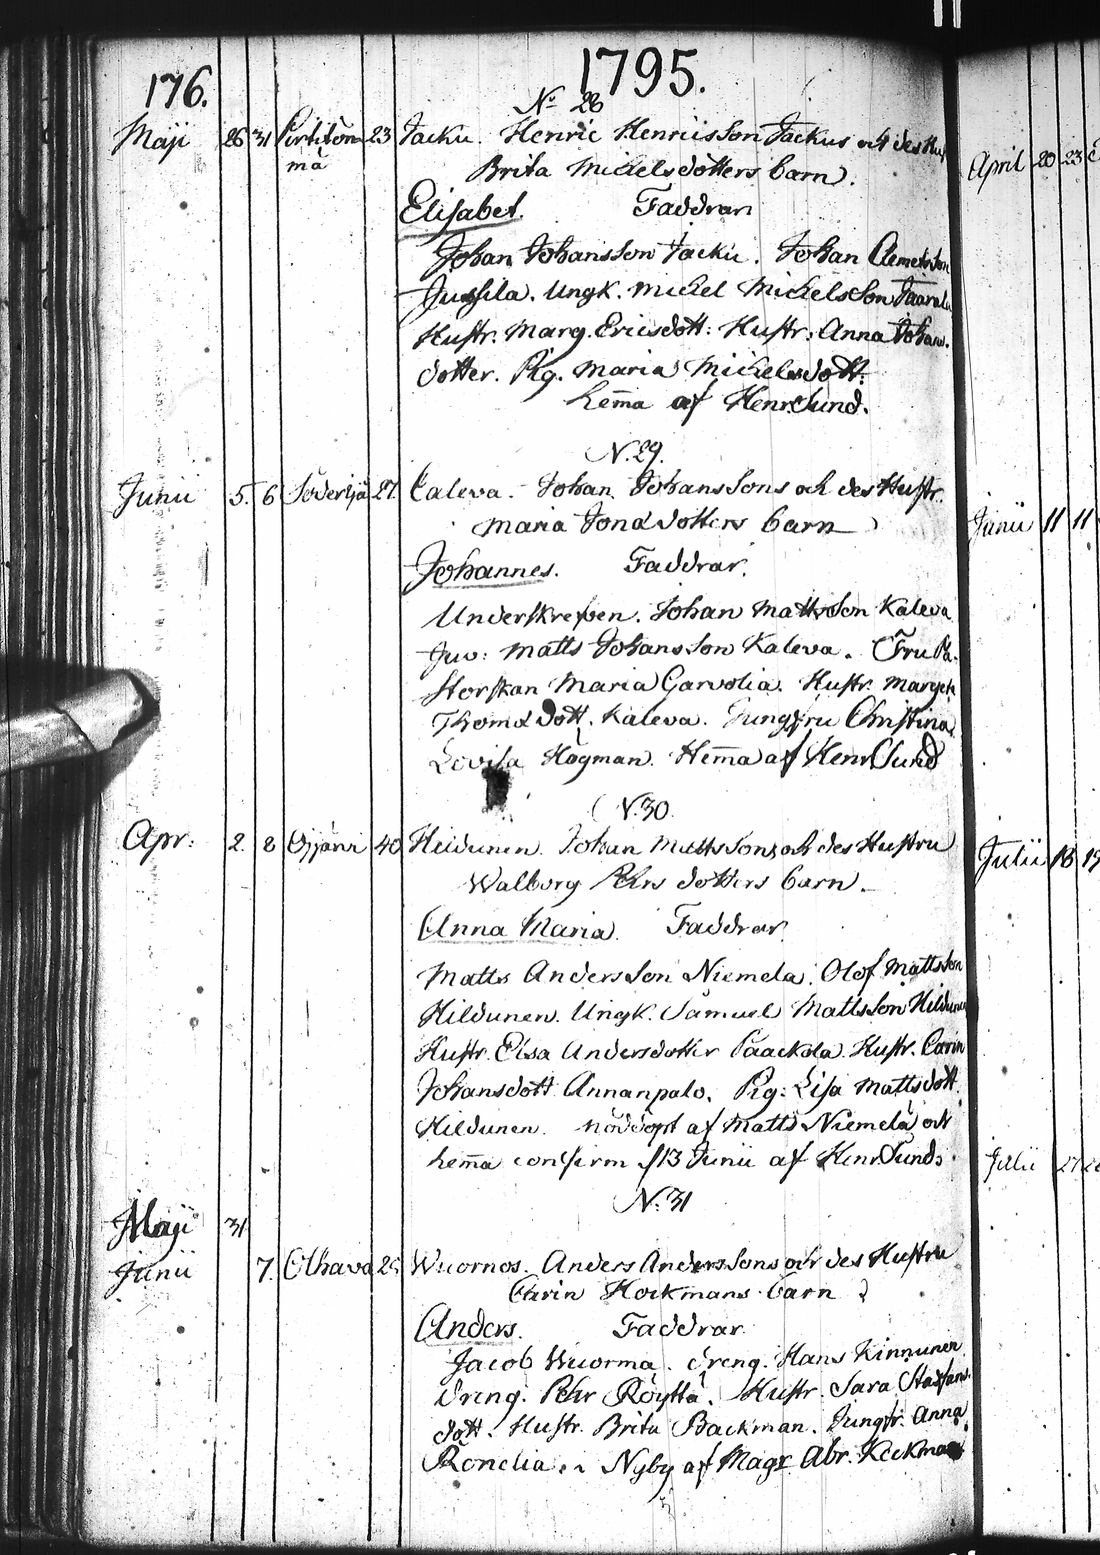 176.
1795.
No 28
Maji 26 31 23 Jacku. Henric Henricsson Jackus och des Hustr
mä
Brita Michelsdotters barn.
Elisabet. Faddrar
Johan Johansson Jacku. Johan Clemetsson
Jussila. Ungk. Michel Michelsson
Hustr. Marg. Ericsdott: Hustr: Anna Johans.
dotter. Pig. Maria Michelsdott.
hema af Henr. Sund.
N. 29.
Junii 5. 6 27. Caleva. Johan Johanssons och des Hustr.
Maria Jonædotters barn
Johannes. Faddrar.
Underskrefven. Johan Mattsson Kaleva
Juv: Matts Johansson Kaleva. Fru Pa-
storskan Maria Garvolia. Hustr. Margeta
Thomædott. Kaleva. Jungfru Christina
Lovisa Högman. Hema af Henr. Sund
N. 30.
Apr: 2. 8 Oijärvi 40 Heidunen. Johan Mattssons och des Hustru
Walborg Pehrs dotters barn.
Anna Maria. Faddrar.
Matts Andersson Niemelä. Olof Mattsson
Hildunen. Ungk. Samuel Mattsson Hildunen
Hustr. Elsa Andersdotter Paackola. Hustr. Carin
Johansdott Annanpalo. Pig: Lisa Mattsdott.
Hildunen. Nöddöpt af Matts Niemelä och
hema confirm. 13 Junii af Henr. Sund.
N. 31
Maji 31
Junii 7. Olhava Wuornos. Anders Anderssons och des Hustru
Carin Hockmans barn
Anders. Faddrar
Jacob Wuorma. dreng. Hans Kinnunen
dreng. Pehr Röyttä. Hustr. Sara Staffans.
dott. Hustr. Brita Backman. Jungfr. Anna
Ronelia i Nyby af Mag. Abr. Keckman
April 20 23
Junii 11 11
Julii 18 19
Julii